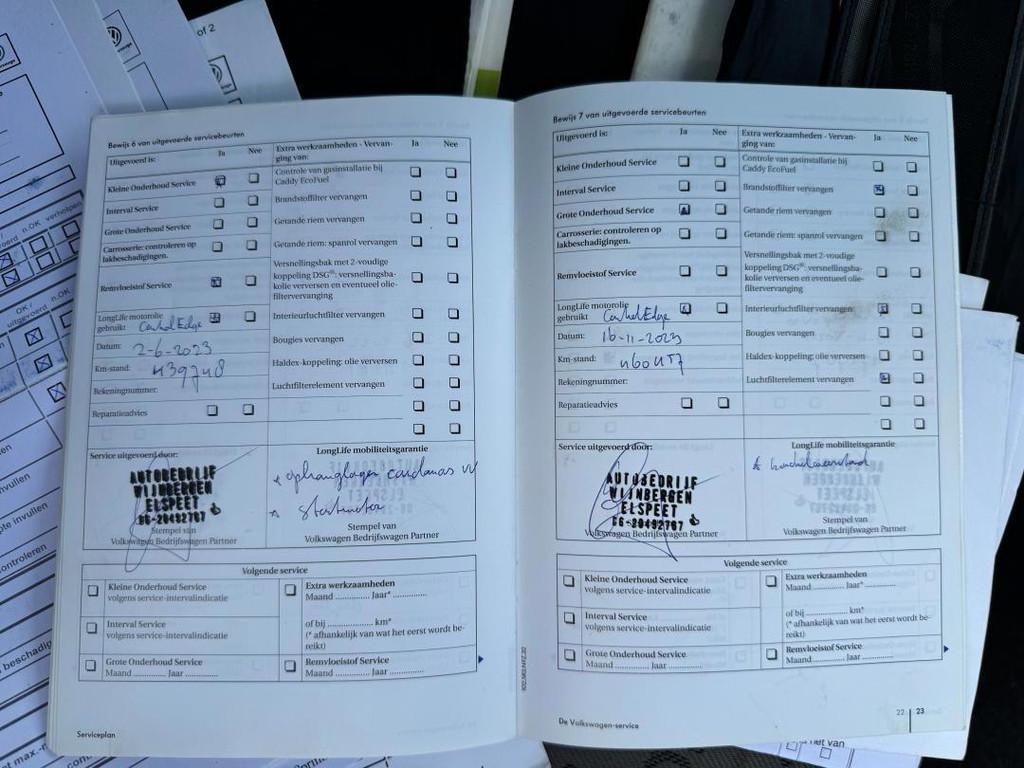 of 2
Bewijs 6 van uitgevoerde servicebeurten
Uitgevoerd is:
Ja
Nee
Extra werkzaamheden - Vervan-
ging van:
Ja
Nee
Kleine Onderhoud Service
Interval Service
Grote Onderhoud Service
Carrosserie: controleren op
lakbeschadigingen.
Remvloeistof Service
LongLife motorolie
gebruikt: Castrol Edge
Datum: 2-6-2023
Km-stand: 439748
Rekeningnummer:
Reparatieadvies
Controle van gasinstallatie bij
Caddy EcoFuel
Brandstoffilter vervangen
Getande riem vervangen
Getande riem: spanrol vervangen
Versnellingsbak met 2-voudige
koppeling DSG®: versnellingsba-
kolie verversen en eventueel olie-
filtervervanging
Interieurluchtfilter vervangen
Bougies vervangen
Haldex-koppeling: olie verversen
Luchtfilterelement vervangen
Service uitgevoerd door:
AUTOBEDRIJF
WIJNBERGEN
ELSPEET
06-20492767
Stempel van
Volkswagen Bedrijfswagen Partner
LongLife mobiliteitsgarantie
ophanglager cardanas
startmotor
Stempel van
Volkswagen Bedrijfswagen Partner
Volgende service
Kleine Onderhoud Service
volgens service-intervalindicatie
Interval Service
volgens service-intervalindicatie
Grote Onderhoud Service
Maand ............ Jaar ............
Extra werkzaamheden
Maand ............ Jaar* ............
of bij ................ km*
(* afhankelijk van wat het eerst wordt be-
reikt)
Remvloeistof Service
Maand ............ Jaar ............
Serviceplan
Bewijs 7 van uitgevoerde servicebeurten
Uitgevoerd is:
Ja
Nee
Extra werkzaamheden - Vervan-
ging van:
Ja
Nee
Kleine Onderhoud Service
Interval Service
Grote Onderhoud Service
Carrosserie: controleren op
lakbeschadigingen.
Remvloeistof Service
LongLife motorolie
gebruikt: Castrol Edge
Datum: 16-11-2023
Km-stand: 460457
Rekeningnummer:
Reparatieadvies
Controle van gasinstallatie bij
Caddy EcoFuel
Brandstoffilter vervangen
Getande riem vervangen
Getande riem: spanrol vervangen
Versnellingsbak met 2-voudige
koppeling DSG®: versnellingsba-
kolie verversen en eventueel olie-
filtervervanging
Interieurluchtfilter vervangen
Bougies vervangen
Haldex-koppeling: olie verversen
Luchtfilterelement vervangen
Service uitgevoerd door:
AUTOBEDRIJF
WIJNBERGEN
ELSPEET
06-20492767
Stempel van
Volkswagen Bedrijfswagen Partner
LongLife mobiliteitsgarantie
Stempel van
Volkswagen Bedrijfswagen Partner
Volgende service
Kleine Onderhoud Service
volgens service-intervalindicatie
Interval Service
volgens service-intervalindicatie
Grote Onderhoud Service
Maand ............ Jaar ............
Extra werkzaamheden
Maand ............ Jaar* ............
of bij ................ km*
(* afhankelijk van wat het eerst wordt be-
reikt)
Remvloeistof Service
Maand ............ Jaar ............
De Volkswagen-service
22 23